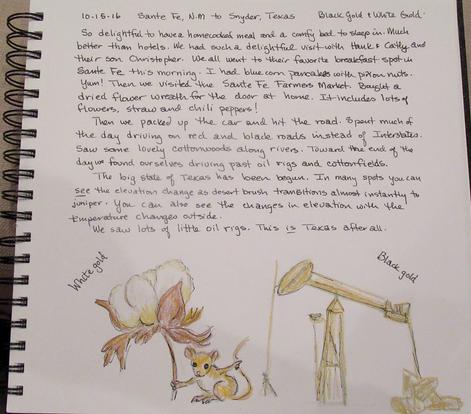 10-15-16 Santa Fe, N.M to Snyder, Texas Black Gold & White Gold
So delightful to have a homecooked meal and a comfy bed to sleep in. Much
better than hotels. We had such a delightful visit with Hank & Cathy, and
their son Christopher. We all went to their favorite breakfast spot in
Santa Fe this morning. I had blue corn pancakes with piñon nuts.
Yum! Then we visited the Santa Fe Farmers Market. Bought a
dried flower wreath for the door at home. It includes lots of
flowers, straw and chili peppers!
Then we packed up the car and hit the road. Spent much of
the day driving on red and black roads instead of Interstates.
Saw some lovely cottonwoods along rivers. Toward the end of the
day we found ourselves driving past oil rigs and cottonfields.
The big state of Texas has been begun. In many spots you can
see the elevation change as desert brush transitions almost instantly to
juniper. You can also see the changes in elevation with the
temperature changes outside.
We saw lots of little oil rigs. This is Texas after all.
White gold
Black gold